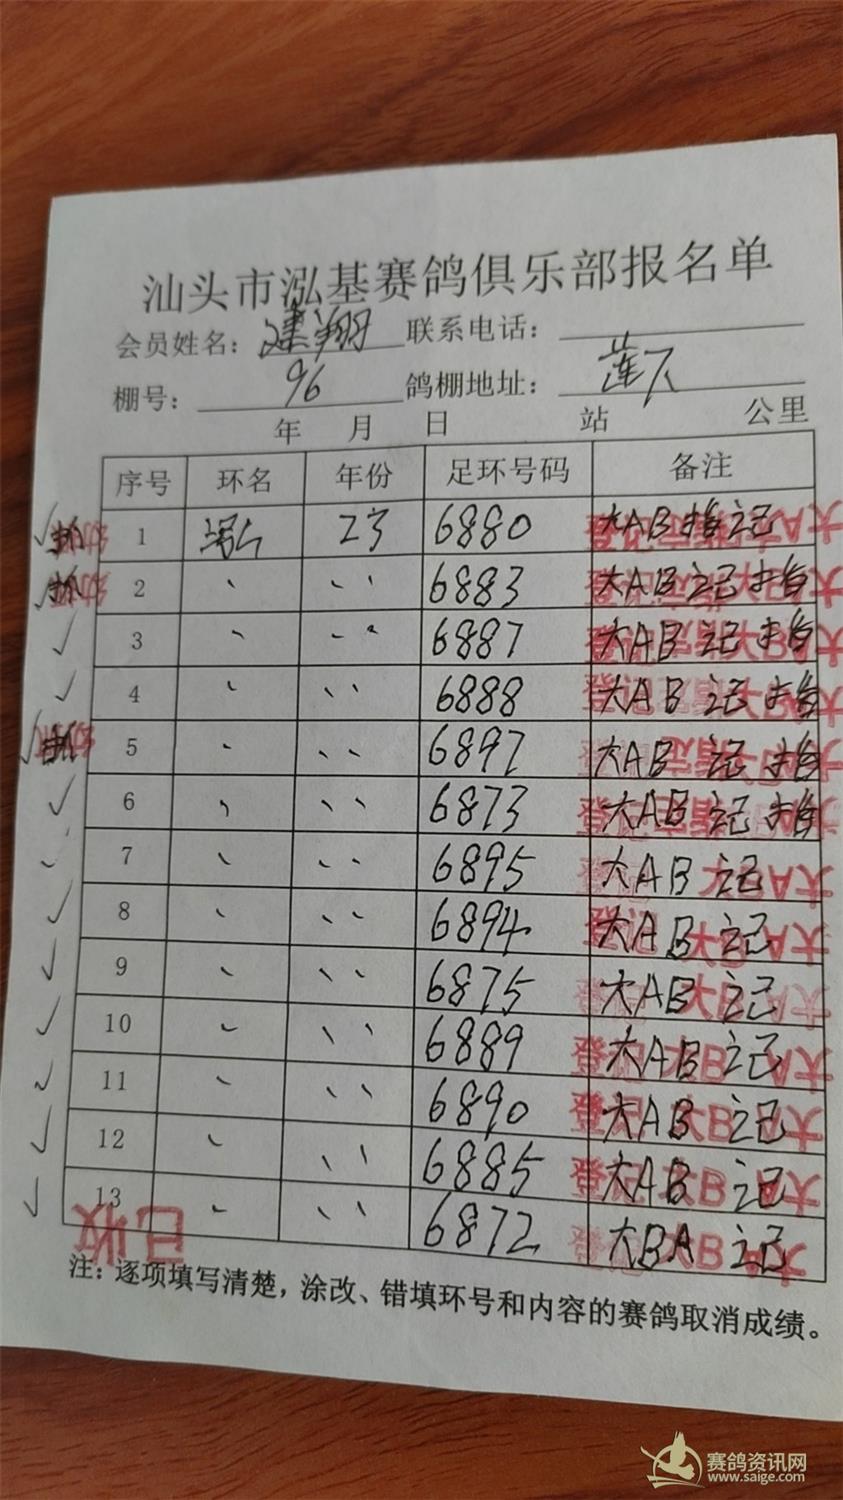 汕头市泓基赛鸽俱乐部报名单
会员姓名：建翔 联系电话：
棚号：96 鸽棚地址：莲下
年 月 日 站 公里
序号 环名 年份 足环号码 备注
1 泓 23 6880 大AB 指 记
2 〃 〃 6883 大AB 记 指
3 〃 〃 6887 大AB 记 指
4 〃 〃 6888 大AB 记 指
5 〃 〃 6897 大AB 记 指
6 〃 〃 6873 大AB 记 指
7 〃 〃 6895 大AB 记
8 〃 〃 6894 大AB 记
9 〃 〃 6875 大AB 记
10 〃 〃 6889 大AB 记
11 〃 〃 6890 大AB 记
12 〃 〃 6885 大AB 记
13 〃 〃 6872 大BA 记
已收
注：逐项填写清楚，涂改、错填环号和内容的赛鸽取消成绩。
赛鸽资讯网
www.saige.com